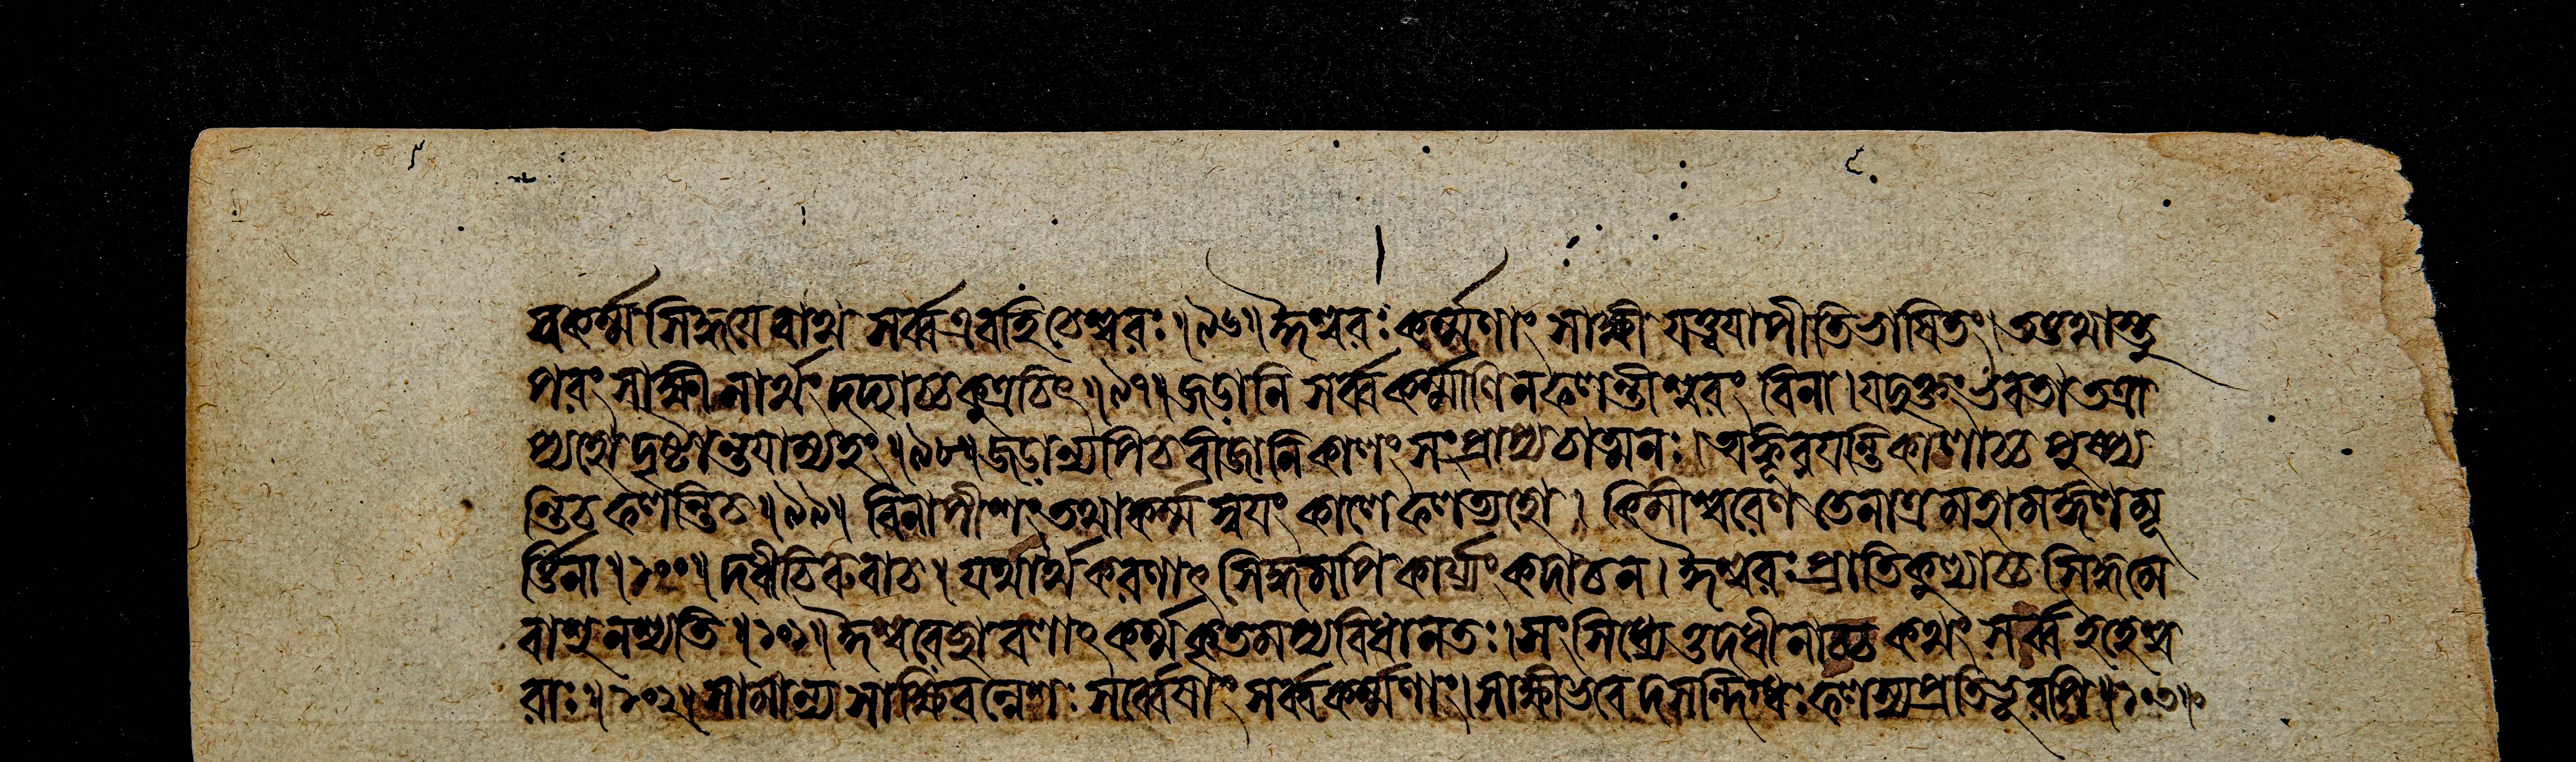 স্বকর্ম্মসিদ্ধয়ে বাথ সর্ব্ব এব হি চেশ্বরঃ॥৯৬॥ ঈশ্বরঃ কর্ম্মণাং সাক্ষী যত্ত্বয়াপীতি ভাষিতং। তত্তথাস্তু
পরং সাক্ষী নার্থং দদ্যাচ্চ কুত্রচিৎ॥৯৭॥ জড়ানি সর্ব্বকর্ম্মাণি ন ফলন্তীশ্বরং বিনা। যদুক্তং ভবতা তত্রা
প্যহো দৃষ্টান্তয়াম্যহং॥৯৮॥ জড়ান্যপি চ বীজানি কালং সংপ্রাপ্য চাত্মনঃ। অঙ্কূরয়ন্তি কালাচ্চ পুষ্প্য
ন্তি চ ফলন্তি চ॥৯৯॥ বিনাপীশং তথা কর্ম্ম স্বয়ং কালে ফলত্যহো। কিমীশ্বরেণ তেনাত্র মহামঙ্গলমূ
র্ত্তিনা॥১০০॥ দধীচিরুবাচ॥ যথার্থকরণাৎ সিদ্ধমপি কার্য্যং কদাচন। ঈশ্বরঃ প্রাতিকুল্যাচ্চ সিদ্ধমে
বাশু নশ্যতি॥১০১॥ ঈশ্বরেহাবশাৎ কর্ম্ম কৃতমপ্যবিধানতঃ। সংসিধ্যেত্তদধীনাচ্চ কথং সর্ব্ব হহেশ্ব
রাঃ॥১০২॥ সামান্যসাক্ষিবন্নেশঃ সর্ব্বেষাং সর্ব্বকর্ম্মণাং। সাক্ষী ভবেদসন্দিগ্ধঃ ফলস্য প্রতিভূরপি॥১০৩॥